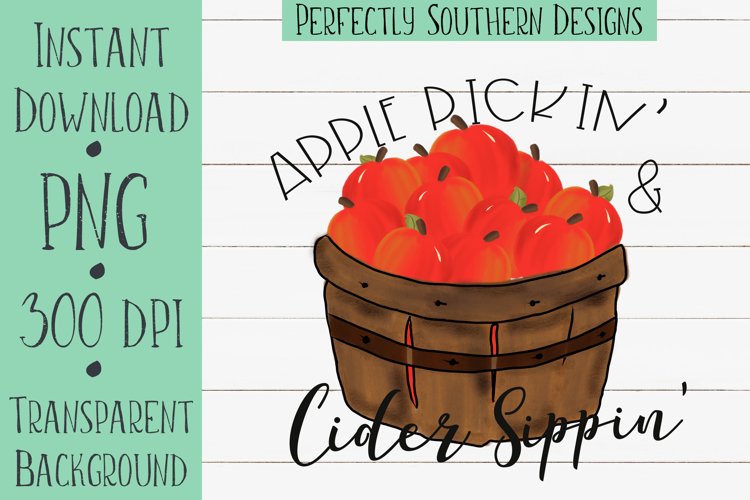 INSTANT
DOWNLOAD
•
PNG
•
300 DPI
•
TRANSPARENT
BACKGROUND
PERFECTLY SOUTHERN DESIGNS
APPLE PICKIN'
&
Cider Sippin'